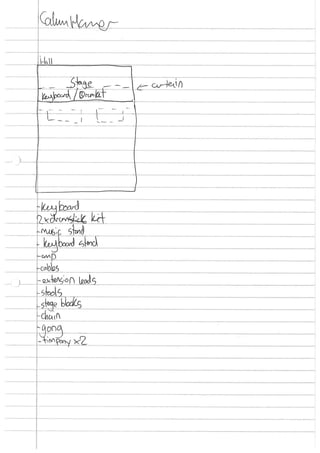 Hall
Stage
← curtain
Keyboard / Drumket
- Keyboard
2x drumstick ket
- music stand
- keyboard stand
- amp
- cables
- extension leads
- stools
- stage blocks
- chain
- gong
- timpany x2